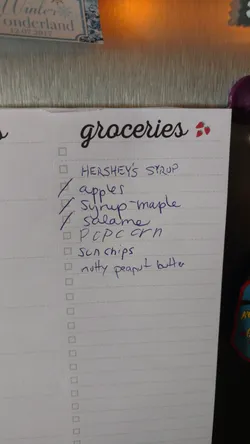 Winter
Wonderland
12.02.2017
groceries
HERSHEY'S SYRUP
apples
Syrup-maple
Salame
PCPCCrn
sun chips
nutty peanut butter